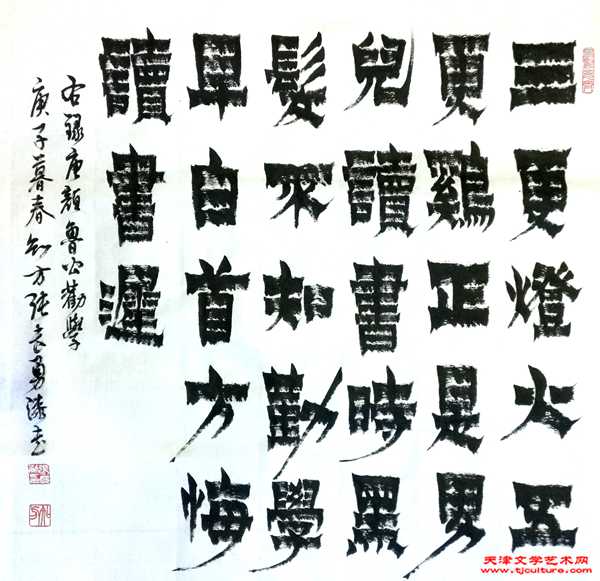 三更燈火五
更鷄正是男
兒讀書時黑
髮不知勤學
早白首方悔
讀書遲
右録唐顔魯公勸學
庚子暮春知方張志勇漆書
天津文学艺术网
www.tjculture.com